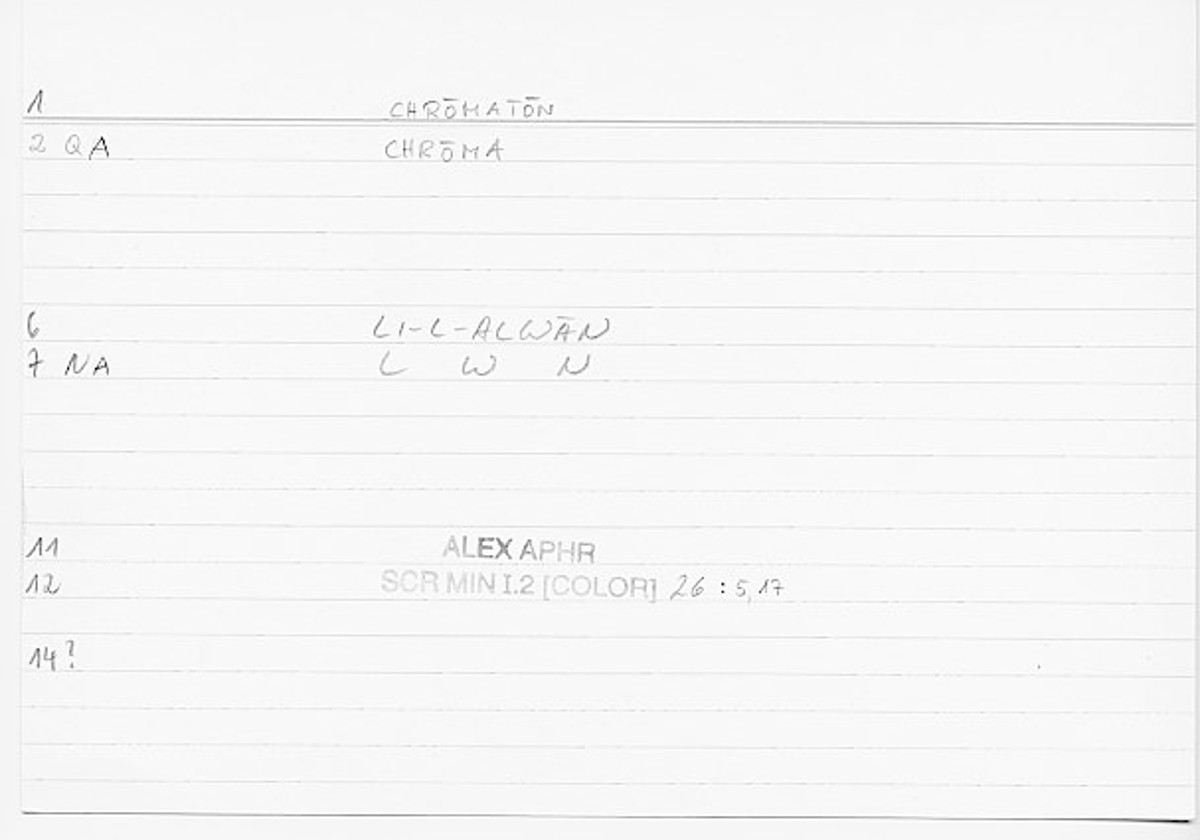 1 CHRŌMATŌN
2 QA CHRŌMA
6 LI-L-ALWĀN
7 NA L W N
11 ALEX APHR
12 SCR MIN I.2 [COLOR] 26 : 5,17
14?